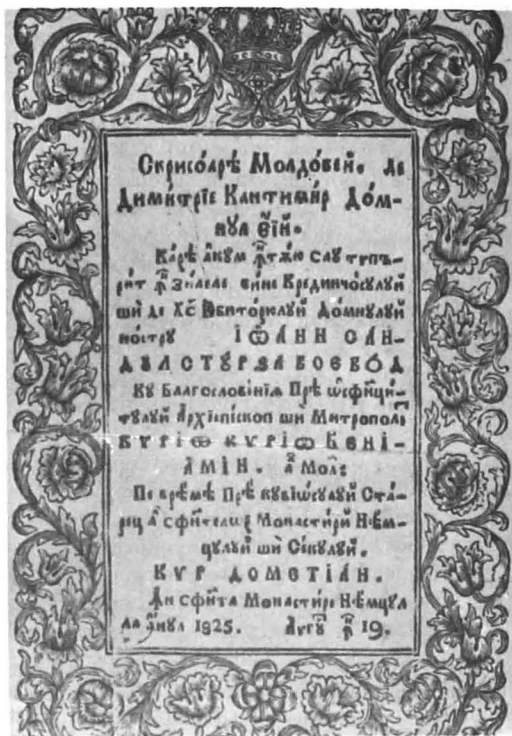 Скрисо́арѣ Молдо́вей. де
Димитрїе Кантими́р До́м-
нꙋл еи҆.
Ка́рѣ аку́м ꙟ҆тѫю са́ꙋ типъ-
ри́т ꙟ҆ зи́леле бине Крединчо́сꙋлꙋй
ши де Хс҃ Юбито́рюлꙋй До́мнꙋлꙋй
но́стрꙋ ІѠА́НН САН-
ДꙊЛ СТꙊРЗА ВОЕВО́Д
Кꙋ Благословѣнїѧ Прѣ ѡсфинци-
тꙋлꙋй Архїепи́скоп ши Митрополи́т
КѴРІѠ КѴРІѠ ВЕНІ-
АМІ́Н. а҆ Молд
Пе врѣ́мѣ Прѣ кꙋвїѡ́сꙋлꙋй Ста́-
рец а҆ сфи́телѡр Монасти́рй Нѣ́м-
цꙋлꙋй ши Се́кꙋлꙋй.
КѴР ДОМЕТІА́Н.
Ꙟ҆н сфѫ́нта Монасти́ре Нѣ́мцꙋл
ла а҆нꙋл 1825. А́ѵгꙋ ꙟ҆ 19.